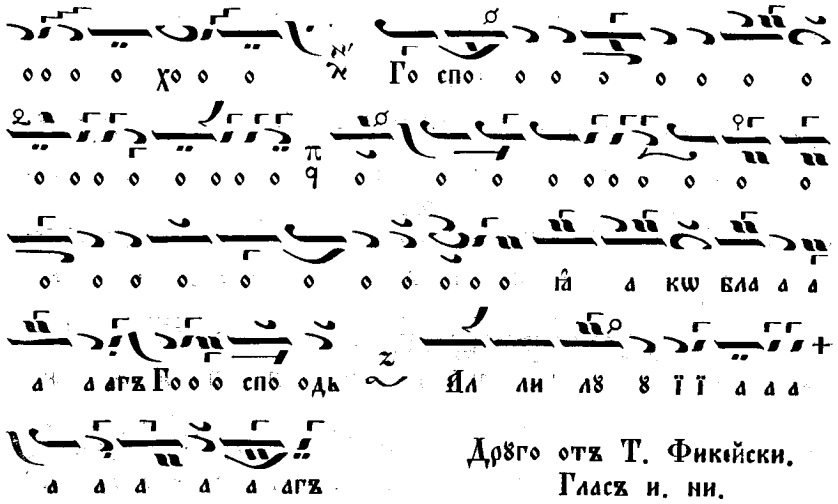 о о о о хо о о Го спо о о о о о о о
о о о о о о о о о о о о о о о о о о
о о о о о о о о о о о о ꙗ а кѡ бла а а
а а агъ Го о о спо одь Ал ли лꙋ ꙋ ї ї а а а
а а а а а агъ
Дрꙋго отъ Т. Фикѡйски.
Гласъ и. ни.